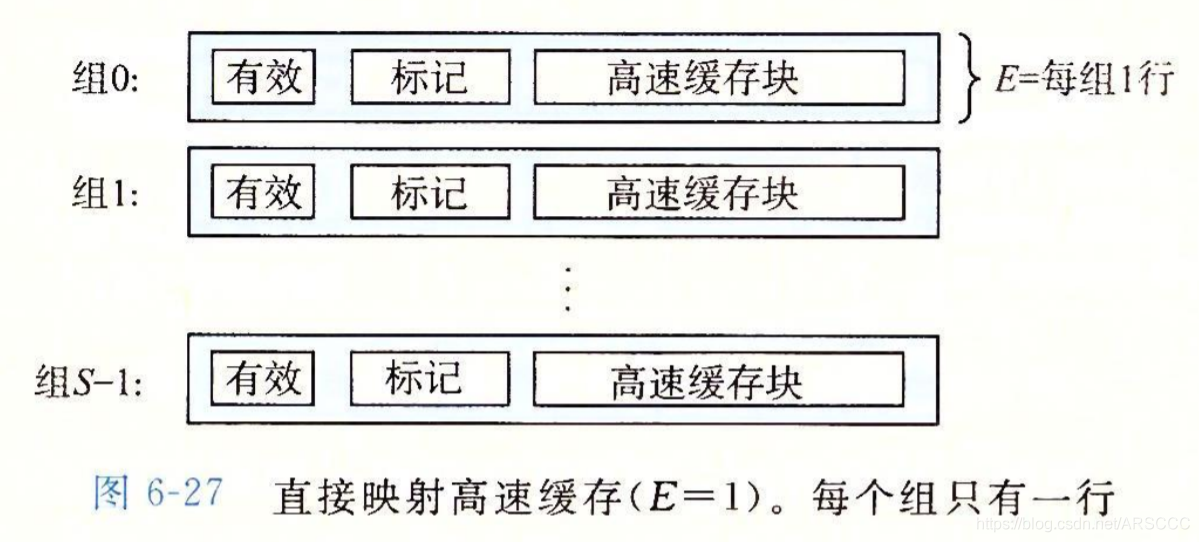 组0: 有效 标记 高速缓存块 E=每组1行
组1: 有效 标记 高速缓存块
组S-1: 有效 标记 高速缓存块
图 6-27 直接映射高速缓存(E=1)。每个组只有一行
https://blog.csdn.net/ARSCCC